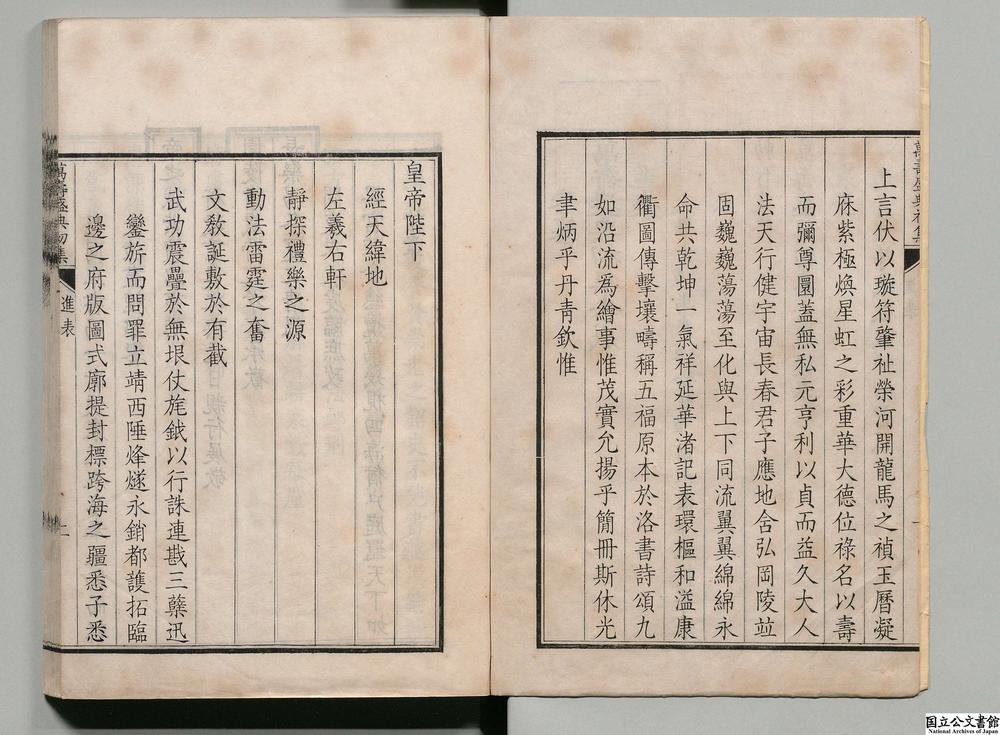 上言伏以璇符肇祉榮河開龍馬之禎玉曆凝
庥紫極煥星虹之彩重華大德位祿名以壽
而彌尊圜蓋無私元亨利以貞而益久大人
法天行健宇宙長春君子應地含弘岡陵竝
固巍巍蕩蕩至化與上下同流翼翼綿綿永
命共乾坤一氣祥延華渚記表環樞和溢康
衢圖傳擊壤疇稱五福原本於洛書詩頌九
如沿流爲繪事惟茂實允揚乎簡冊斯休光
聿炳乎丹青欽惟
皇帝陛下
經天緯地
左羲右軒
靜探禮樂之源
動法雷霆之奮
文敎誕敷於有截
武功震疊於無垠仗旄鉞以行誅連戡三蘖迅
鑾旂而問罪立靖西陲烽燧永銷都護拓臨
邊之府版圖式廓提封標跨海之疆悉子悉
萬壽盛典初集
進表
二
国立公文書館
National Archives of Japan